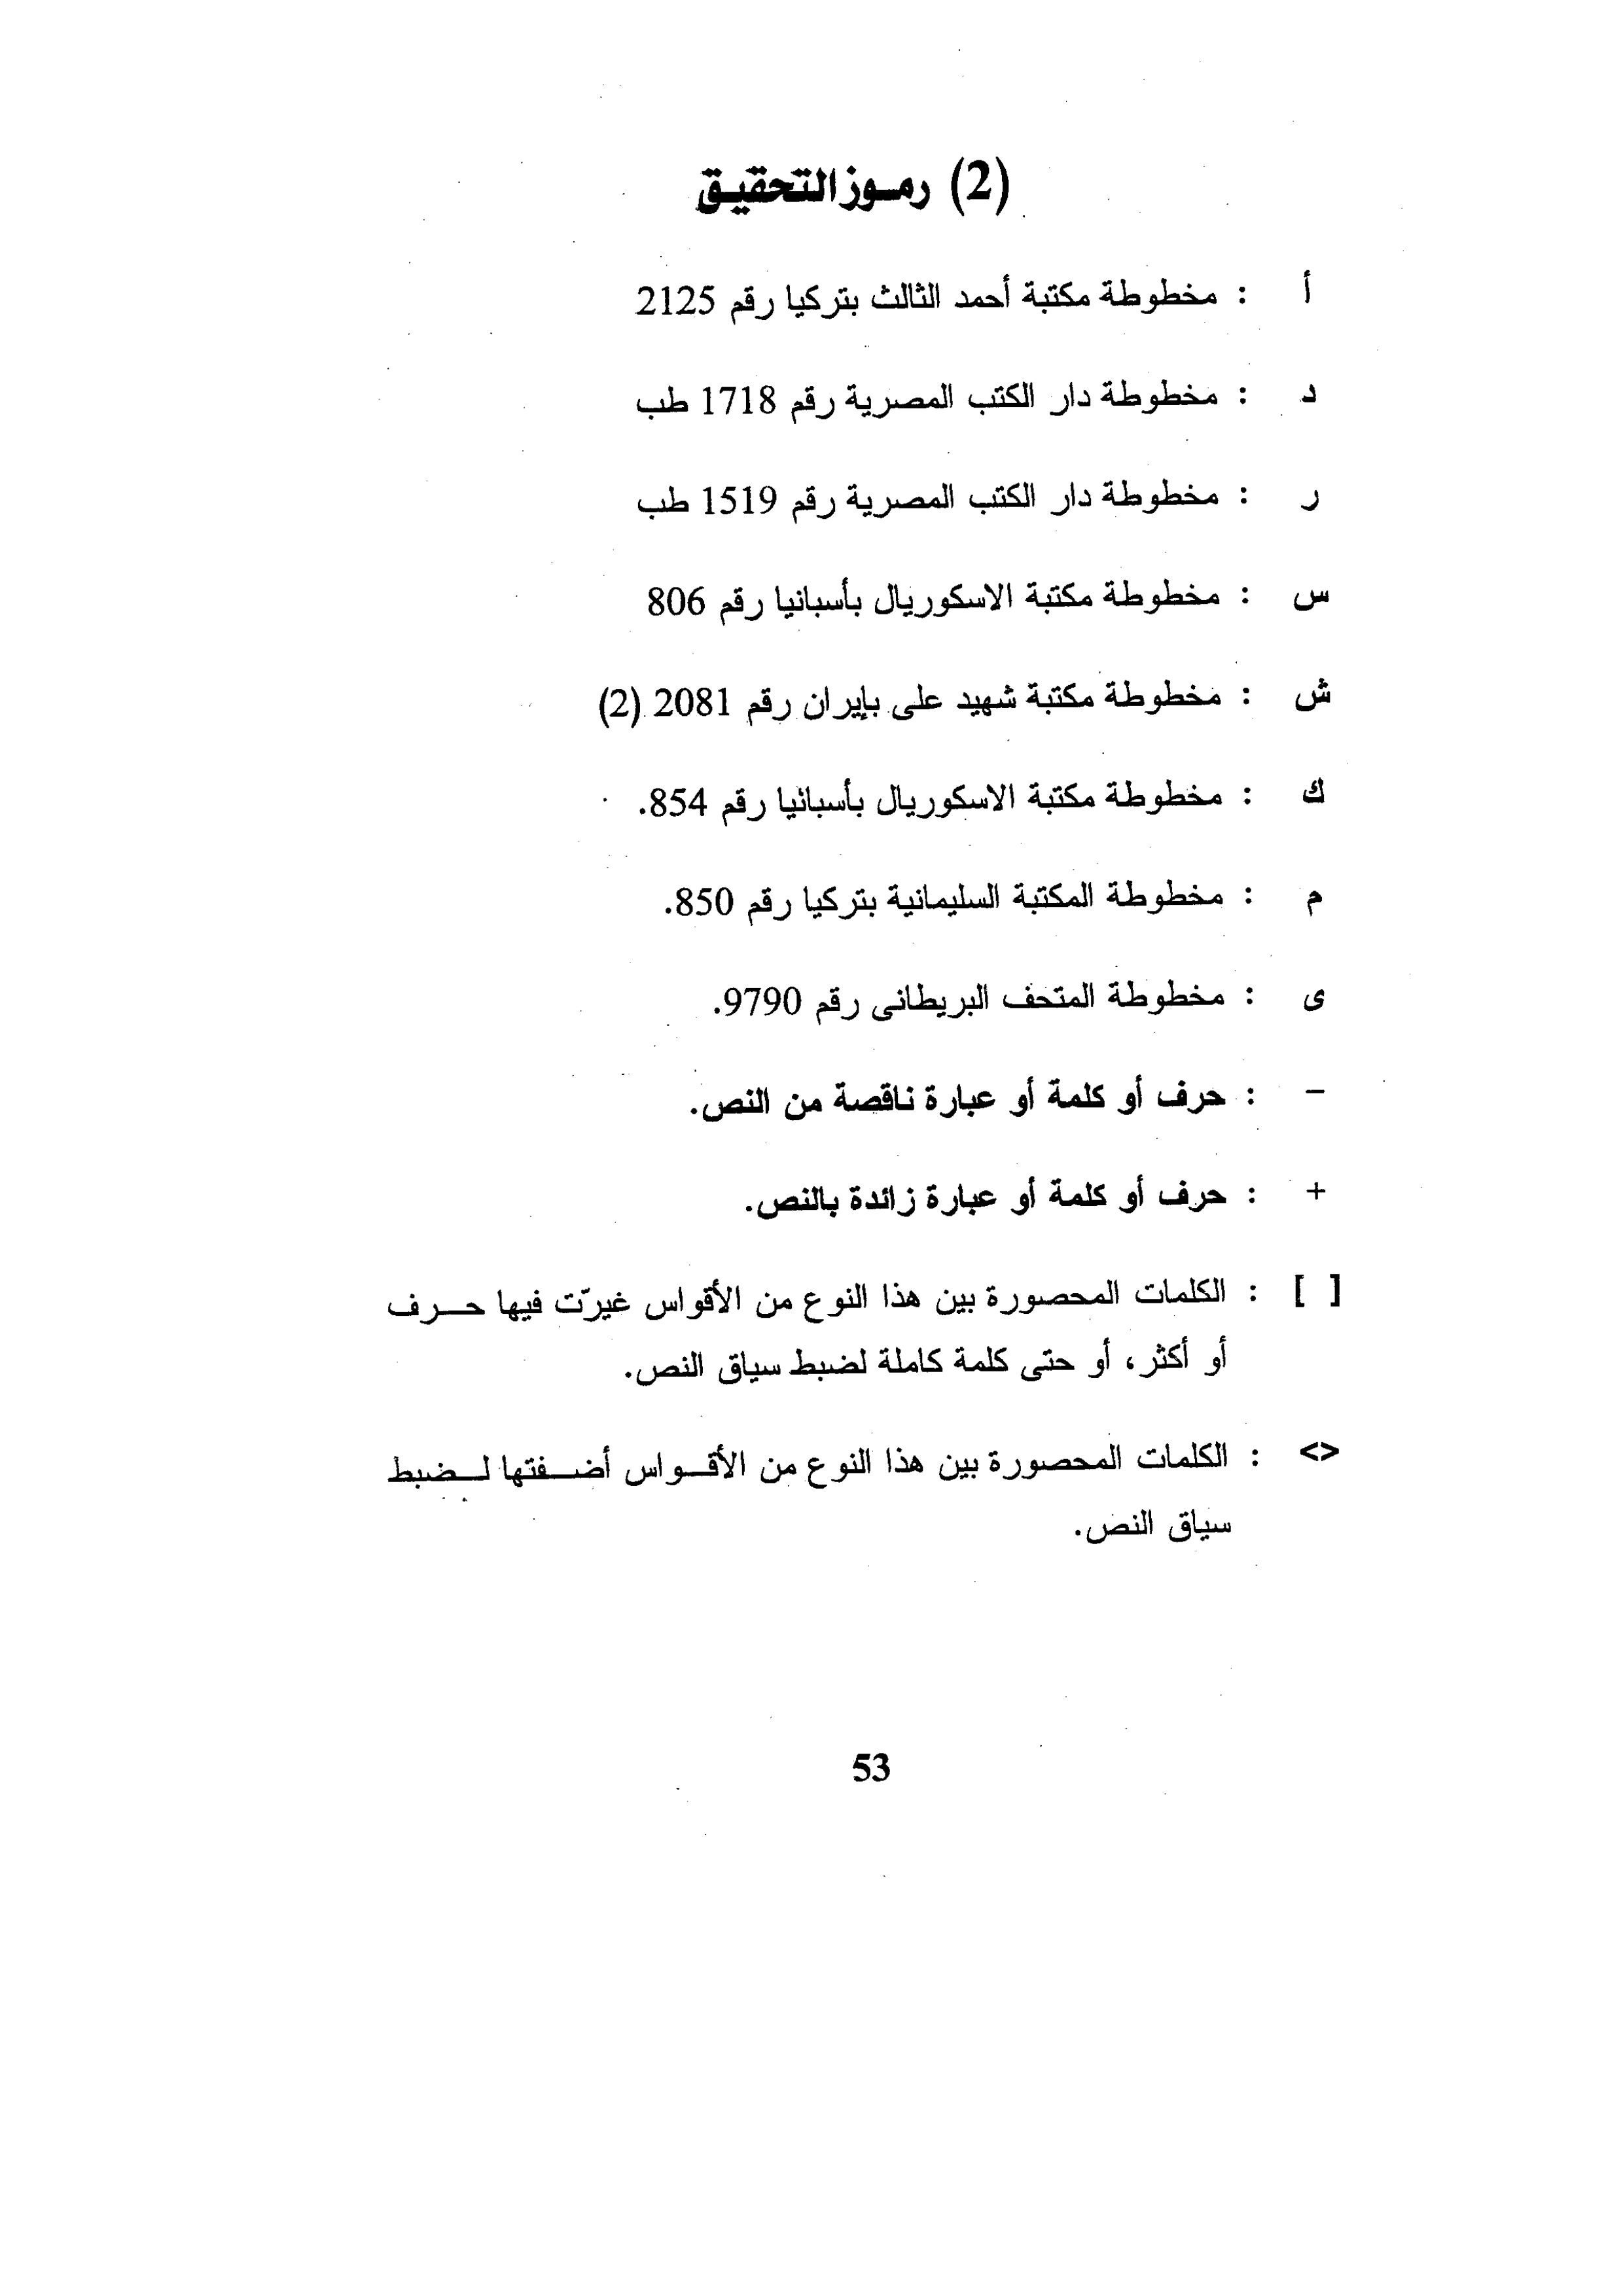 (2) رمـوز التحقيـق
أ : مخطوطة مكتبة أحمد الثالث بتركيا رقم 2125
د : مخطوطة دار الكتب المصرية رقم 1718 طب
ر : مخطوطة دار الكتب المصرية رقم 1519 طب
س : مخطوطة مكتبة الاسكوريال بأسبانيا رقم 806
ش : مخطوطة مكتبة شهيد على بإيران رقم 2081 (2)
ك : مخطوطة مكتبة الاسكوريال بأسبانيا رقم 854.
م : مخطوطة المكتبة السليمانية بتركيا رقم 850.
ى : مخطوطة المتحف البريطانى رقم 9790.
– : حرف أو كلمة أو عبارة ناقصة من النص.
+ : حرف أو كلمة أو عبارة زائدة بالنص.
[ ] : الكلمات المحصورة بين هذا النوع من الأقواس غيرّت فيها حـــرف
أو أكثر، أو حتى كلمة كاملة لضبط سياق النص.
<> : الكلمات المحصورة بين هذا النوع من الأقـــواس أضـــفتها لـــضبط
سياق النص.
53